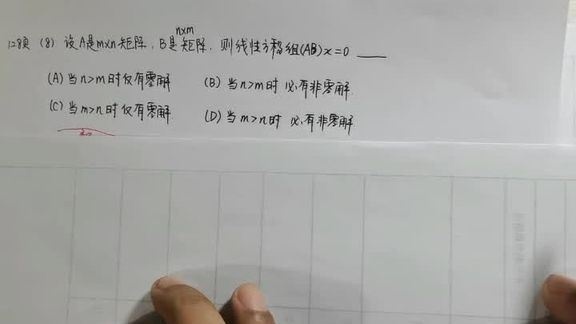 n×m
128页 (8) 设A是m×n矩阵,B是矩阵,则线性方程组(AB)x=0 ____
(A) 当n>m时仅有零解 (B) 当n>m时 必有非零解
(C) 当m>n时仅有零解 (D) 当m>n时 必有非零解